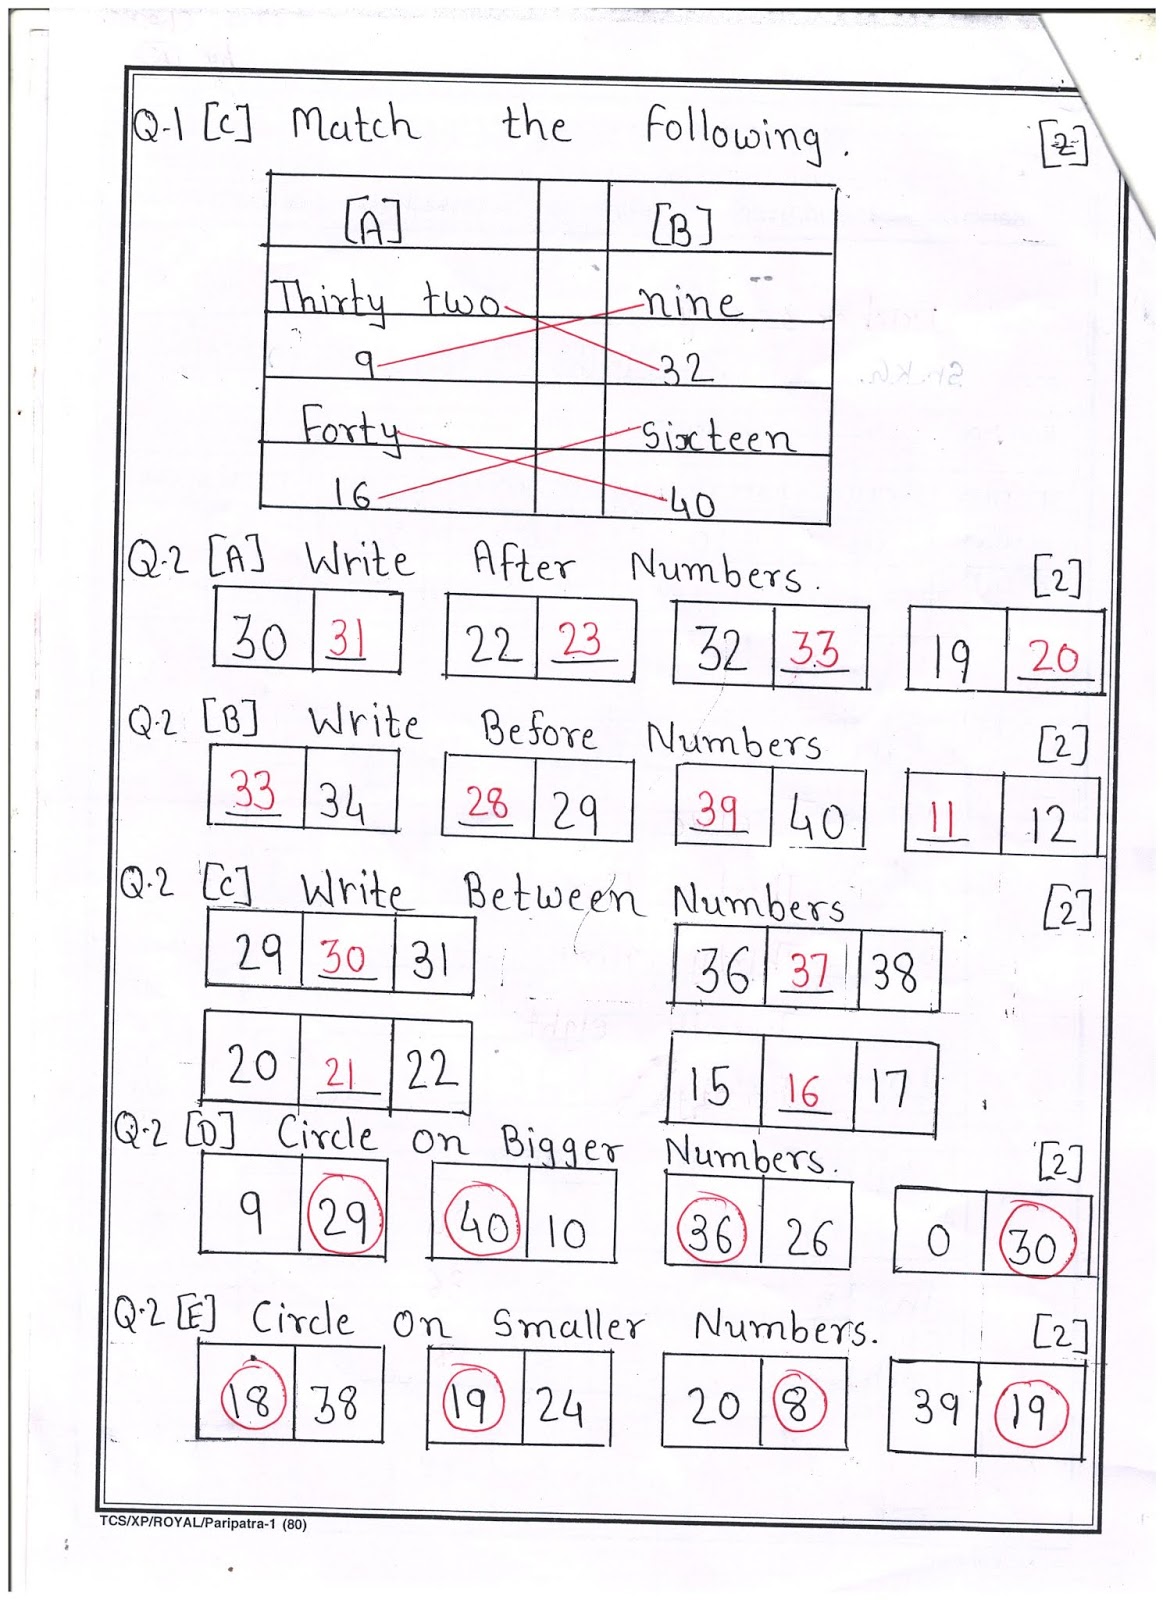 Q-1 [C] Match the Following. [2]
[A] [B]
Thirty two nine
9 32
Forty Sixteen
16 40
Q.2 [A] Write After Numbers. [2]
30 31 22 23 32 33 19 20
Q.2 [B] Write Before Numbers [2]
33 34 28 29 39 40 11 12
Q.2 [C] Write Between Numbers [2]
29 30 31 36 37 38
20 21 22 15 16 17
Q.2 [D] Circle on Bigger Numbers. [2]
9 29 40 10 36 26 0 30
Q.2 [E] Circle on Smaller Numbers. [2]
18 38 19 24 20 8 39 19
TCS/XP/ROYAL/Paripatra-1 (80)